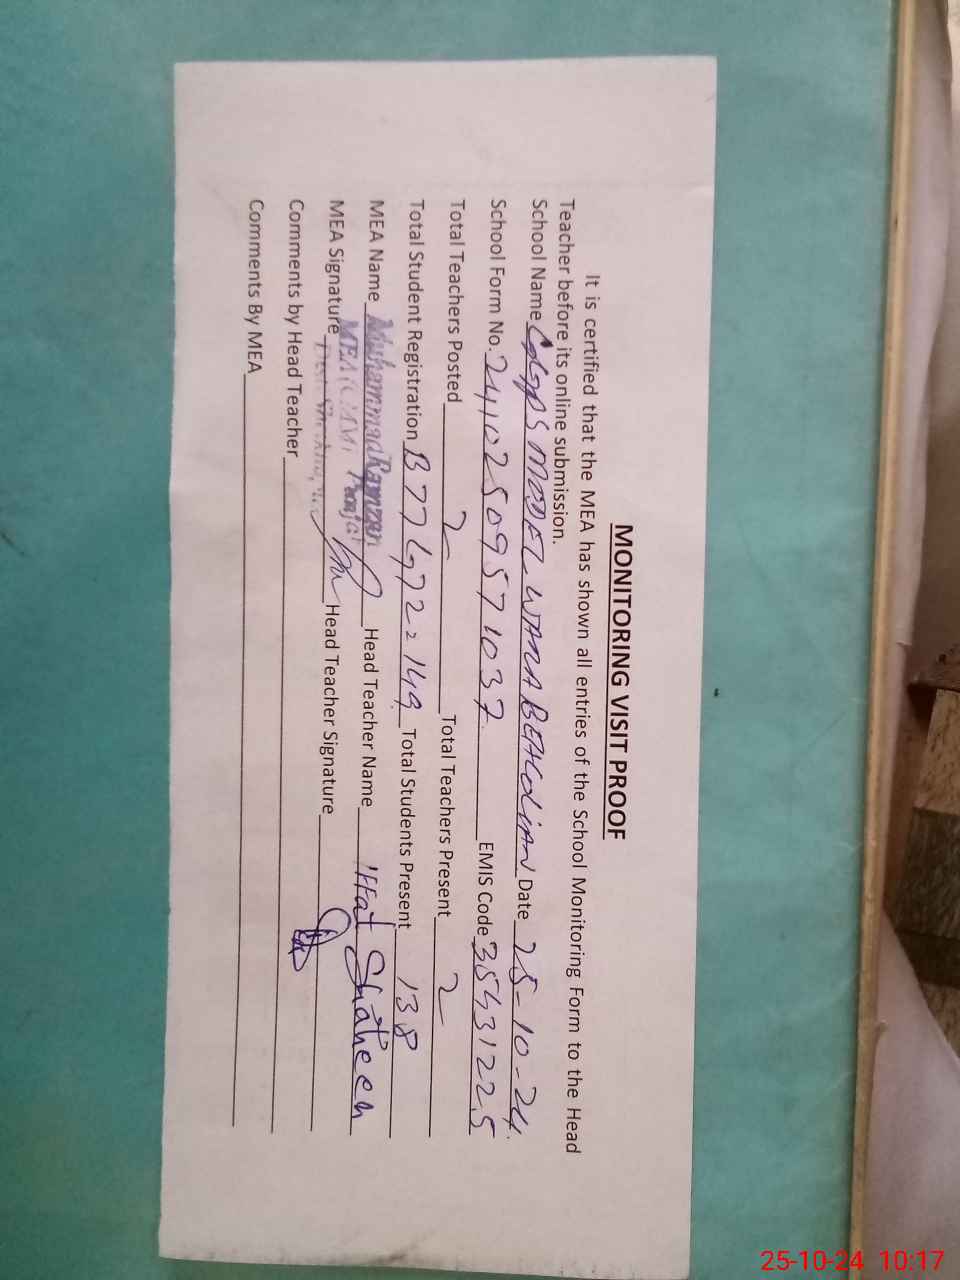 MONITORING VISIT PROOF
It is certified that the MEA has shown all entries of the School Monitoring Form to the Head
Teacher before its online submission.
School Name GGPS MODEL WARA BEHLOLIAN Date 25-10-24
School Form No. 24102509571037 EMIS Code 35431225
Total Teachers Posted 2 Total Teachers Present 2
Total Student Registration B 77 G 72 = 149 Total Students Present 138
MEA Name Muhammad Ramzan Head Teacher Name Iffat Shaheen
MEA (CMM) Punjab
MEA Signature Head Teacher Signature
Comments by Head Teacher
Comments By MEA
25-10-24 10:17